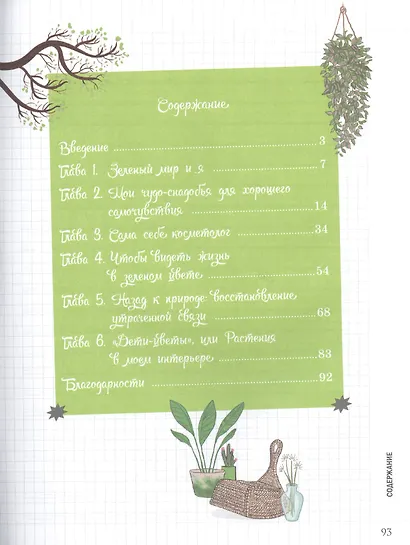 Содержание
Введение 3
Глава 1. Зеленый мир и я 7
Глава 2. Мои чудо-снадобья для хорошего
самочувствия 14
Глава 3. Сама себе косметолог 34
Глава 4. Чтобы видеть жизнь
в зеленом цвете 54
Глава 5. Назад к природе: восстановление
утраченной связи 68
Глава 6. «Дети-цветы», или Растения
в моем интерьере 83
Благодарности 92
СОДЕРЖАНИЕ
93